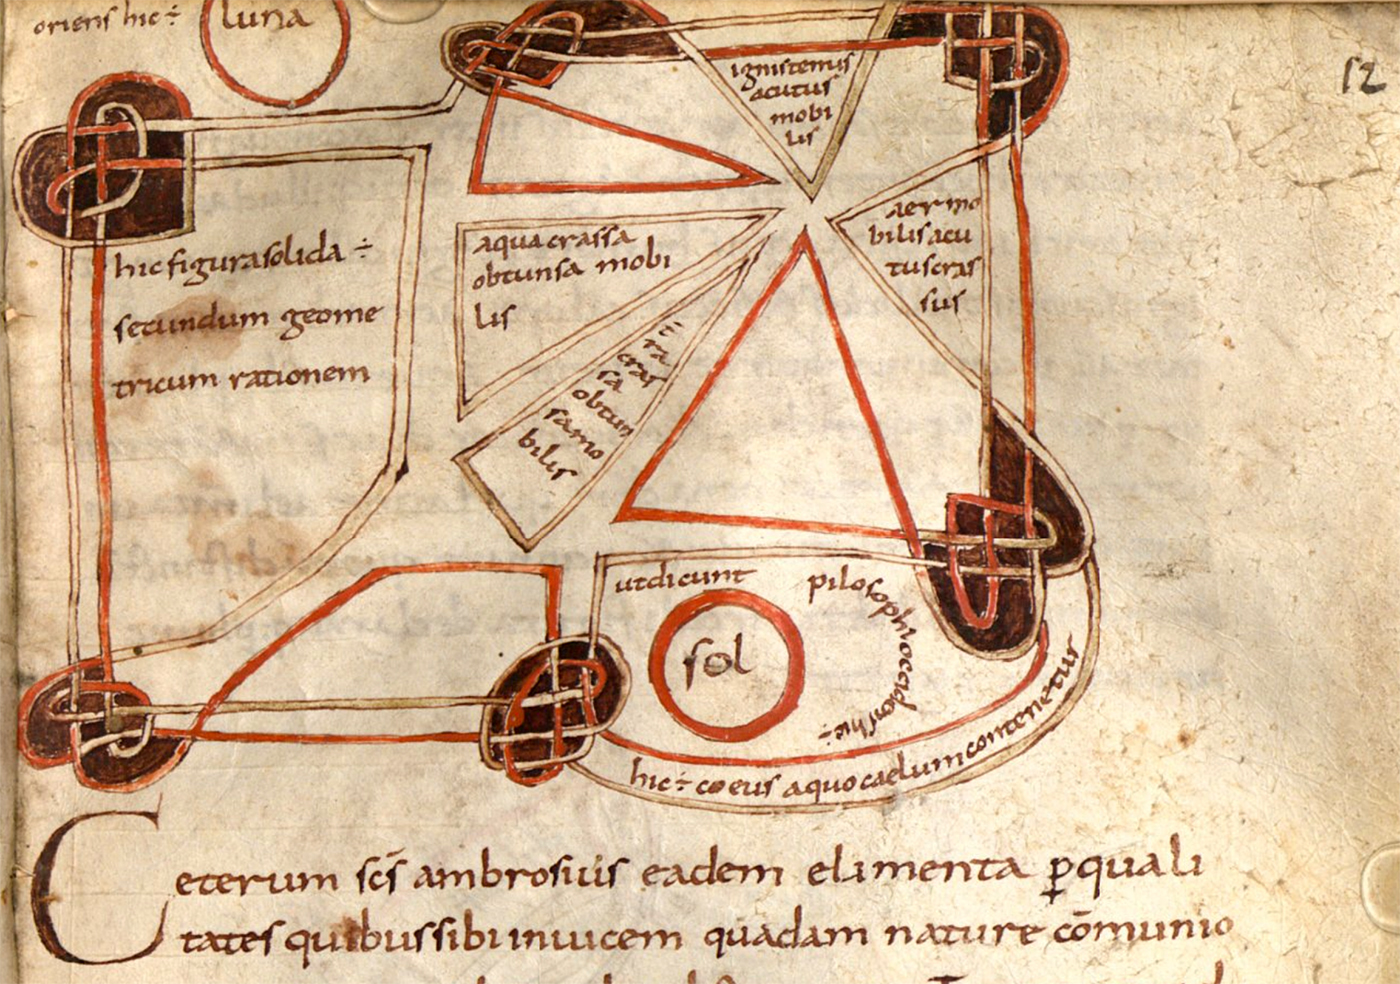 oriens hic ÷
luna
52
ignis tenuis
acutus
mobi
lis
aer mo
bilis acu
tus cras
sus
aqua crassa
obtunsa mobi
lis
hic figura solida ÷
secundum geome
tricum rationem
ra
cras
sa
obtun
sa mo
bilis
ut dicunt pilosophi occidons hic ÷
sol
hic ÷ coeus a quo caelum contenetur
Ceterum sc̄s ambrosius eadem elimenta ꝑ quali
tates quibus sibi inuicem quadam nature cōmunio